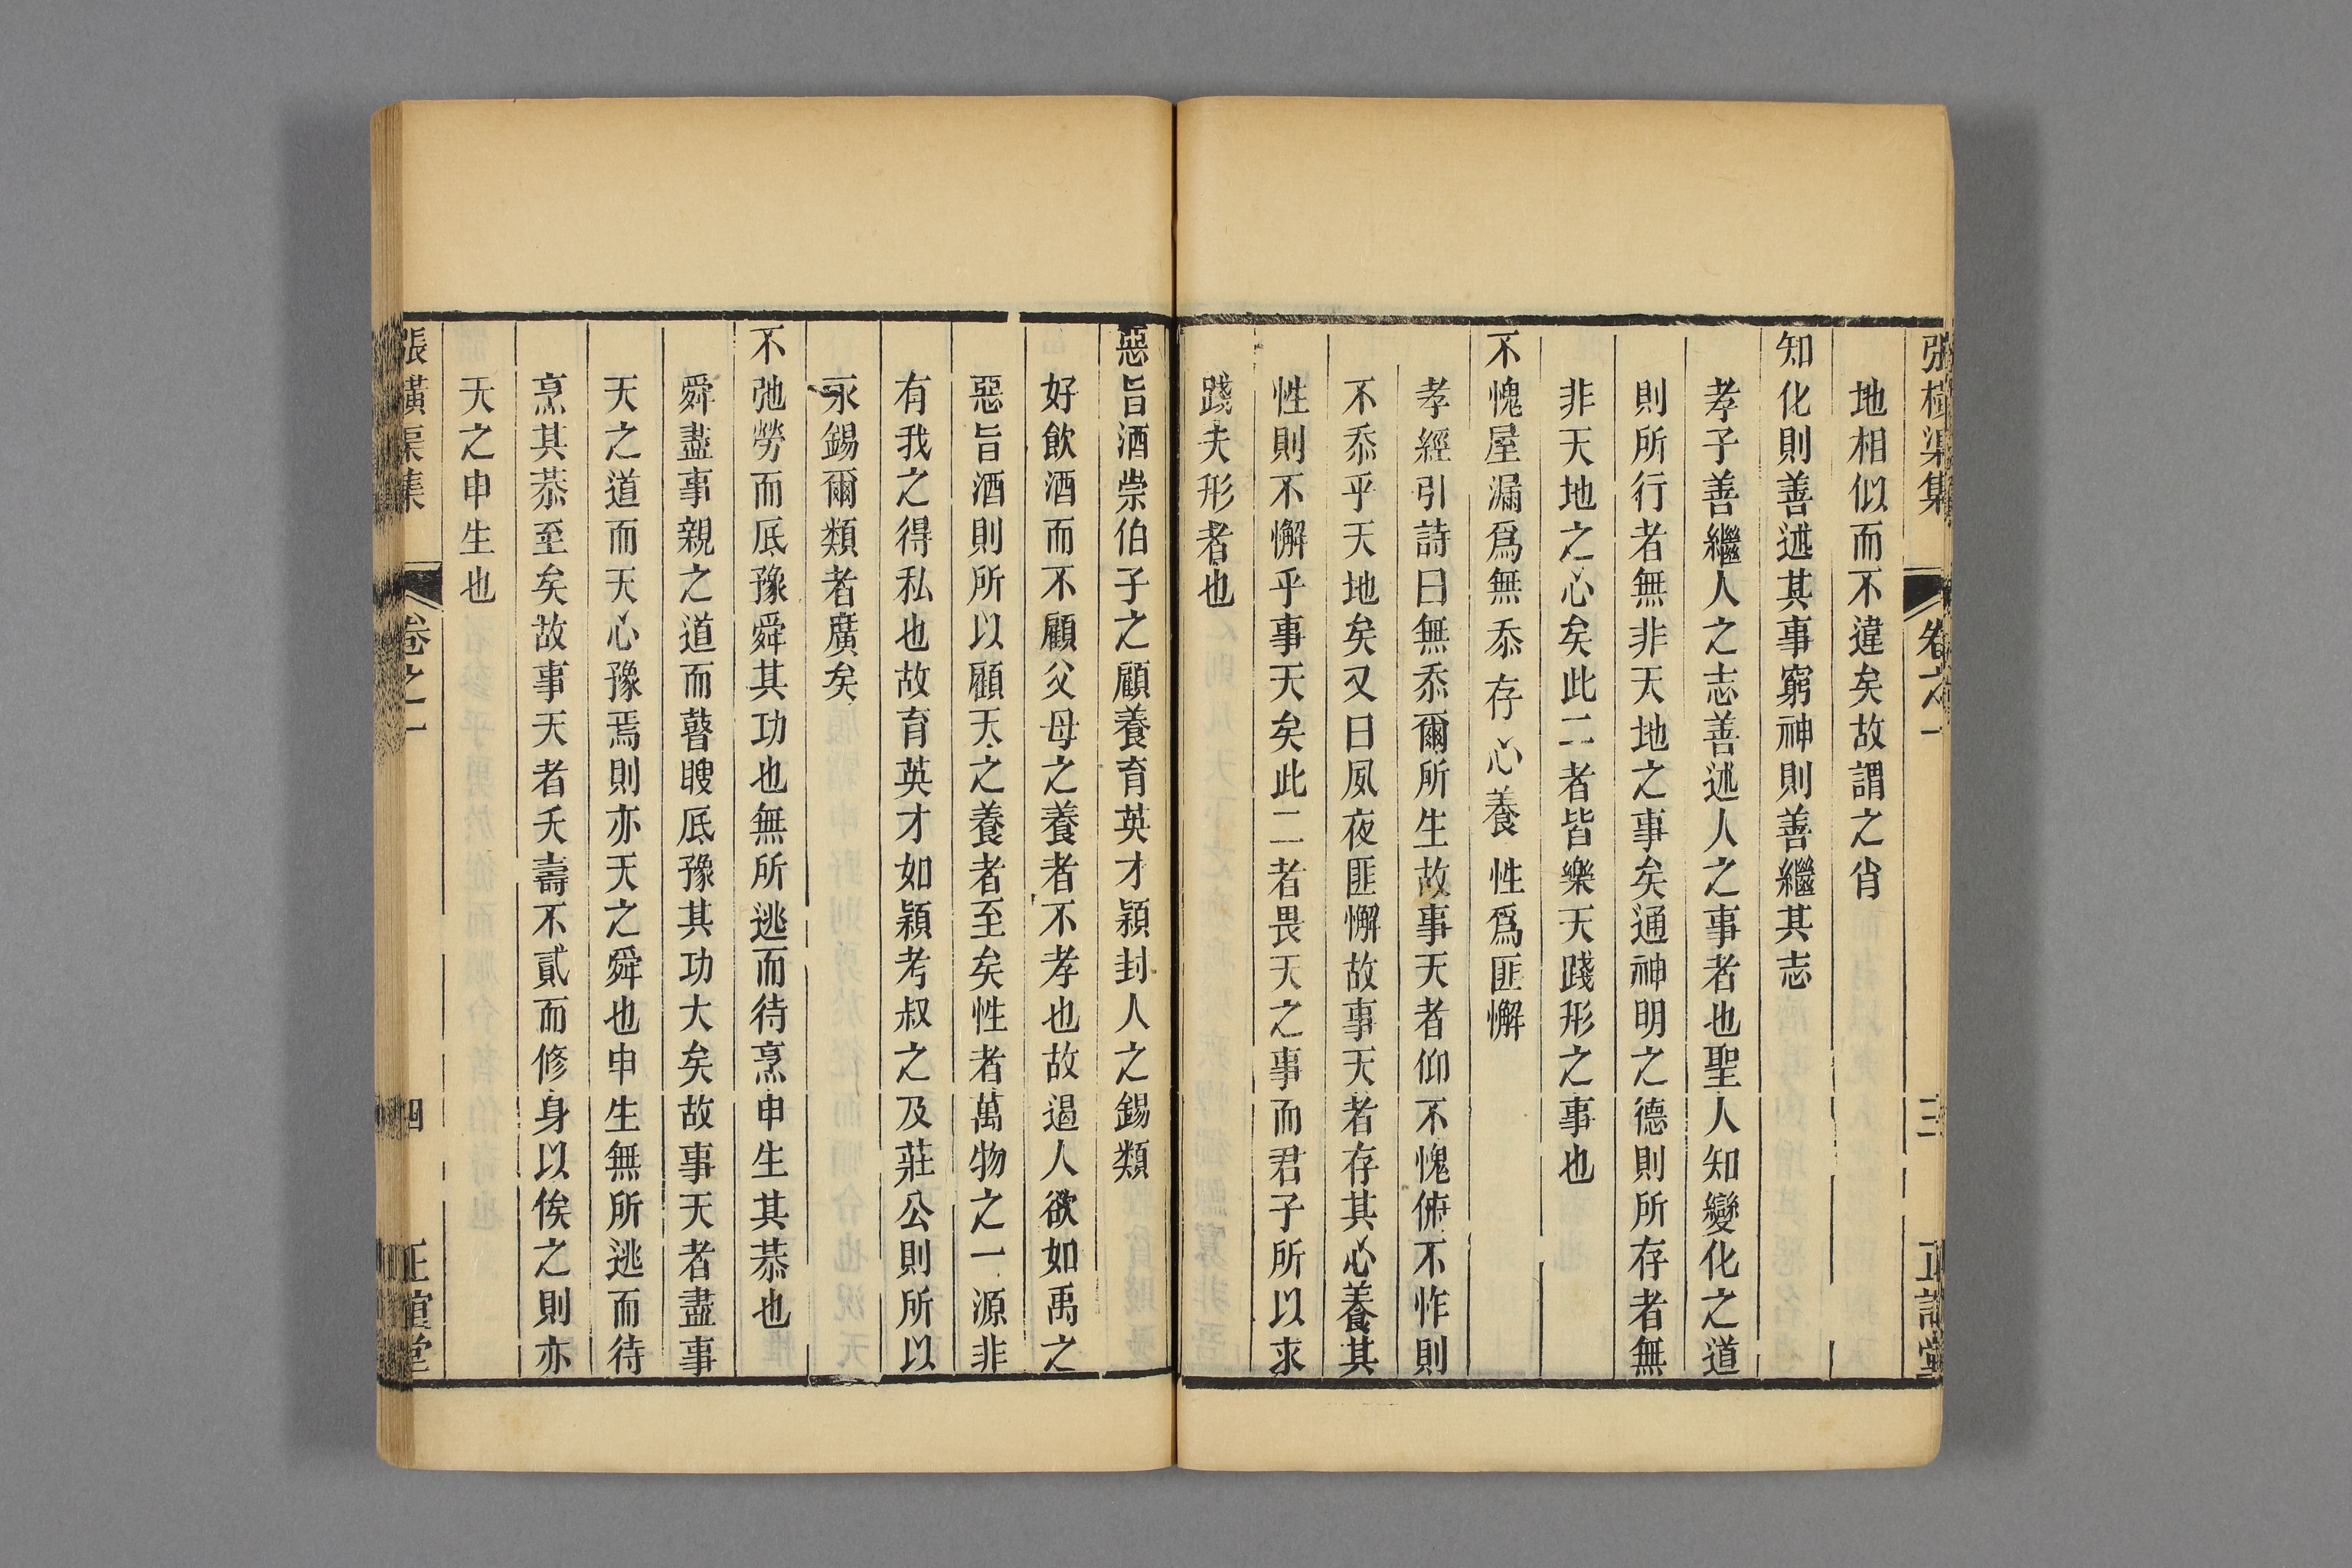 張橫渠集 卷之一 三 正誼堂
地相似而不違矣故謂之肖
知化則善述其事窮神則善繼其志
孝子善繼人之志善述人之事者也聖人知變化之道
則所行者無非天地之事矣通神明之德則所存者無
非天地之心矣此二者皆樂天踐形之事也
不愧屋漏爲無忝存心養性爲匪懈
孝經引詩曰無忝爾所生故事天者仰不愧俯不怍則
不忝乎天地矣又曰夙夜匪懈故事天者存其心養其
性則不懈乎事天矣此二者畏天之事而君子所以求
踐夫形者也
惡旨酒崇伯子之顧養育英才潁封人之錫類
好飲酒而不顧父母之養者不孝也故遏人欲如禹之
惡旨酒則所以顧天之養者至矣性者萬物之一源非
有我之得私也故育英才如潁考叔之及莊公則所以
永錫爾類者廣矣
不弛勞而厎豫舜其功也無所逃而待烹申生其恭也
舜盡事親之道而瞽瞍厎豫其功大矣故事天者盡事
天之道而天心豫焉則亦天之舜也申生無所逃而待
烹其恭至矣故事天者夭壽不貳而修身以俟之則亦
天之申生也
張橫渠集 卷之一 四 正誼堂